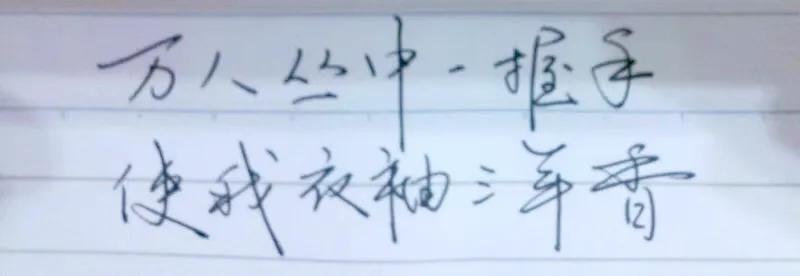 万人丛中一握手
使我衣袖三年香